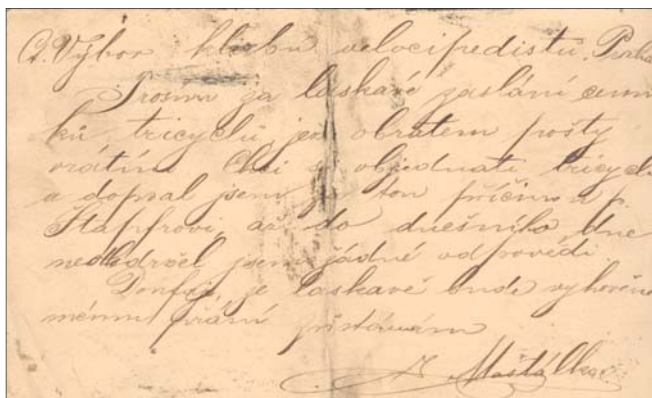 Výbor klubu velocipedistů. Praha
Prosím za laskavé zaslání cenní
ků tricyclů jež obratem pošty
vrátím Chci objednati tricycl
a dopsal jsem ton příčinu p.
až do dnešního dne
neobdržel jsem žádné odpovědi.
Doufaje, že laskavě bude vyhověno
mému přání zůstávám
Maštálka